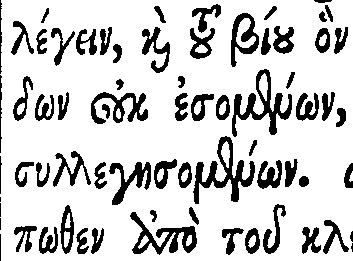 λέγειν, ϗ̀ τοῦ βίου ὃν
δων οὐκ ἐσομένων,
συλλεγησομένων.
πωθεν ἀπὸ τοῦ κλε